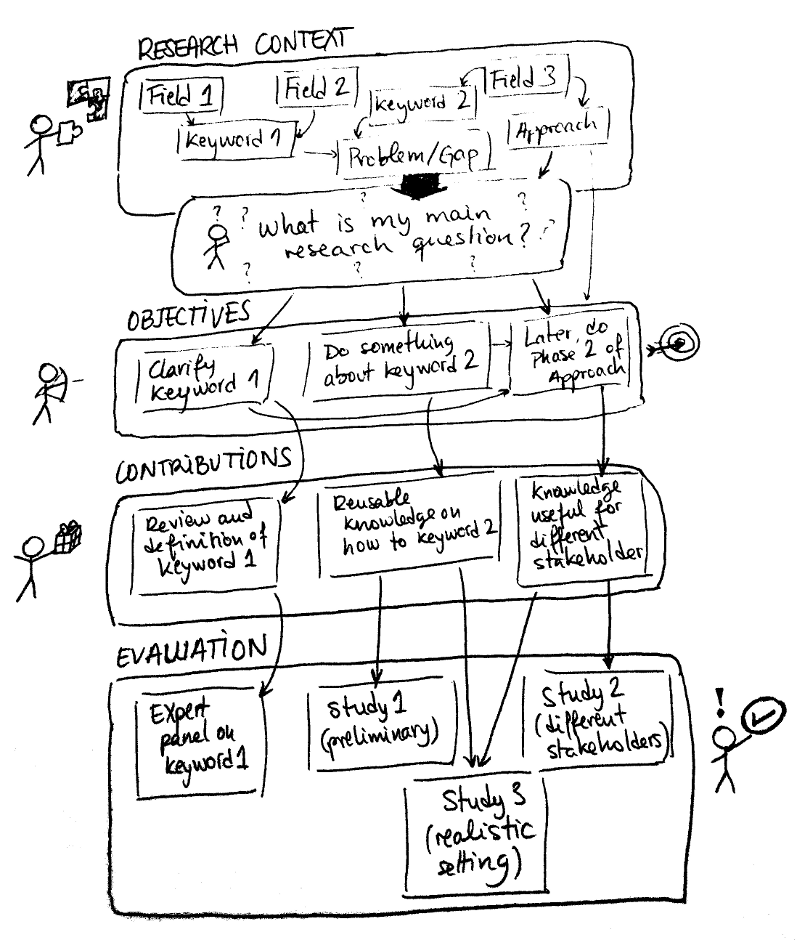 RESEARCH CONTEXT
Field 1
Field 2
Field 3
Keyword 2
Keyword 1
Approach
Problem/Gap
? ? ? ?
What is my main
research question?
?
? ? ?
OBJECTIVES
Clarify
Keyword 1
Do something
about keyword 2
Later, do
Phase 2 of
Approach
CONTRIBUTIONS
Review and
definition of
keyword 1
Reusable
knowledge on
how to keyword 2
Knowledge
useful for
different
stakeholder
EVALUATION
Expert
panel on
keyword 1
Study 1
(preliminary)
Study 2
(different
stakeholders)
!
Study 3
(realistic
setting)